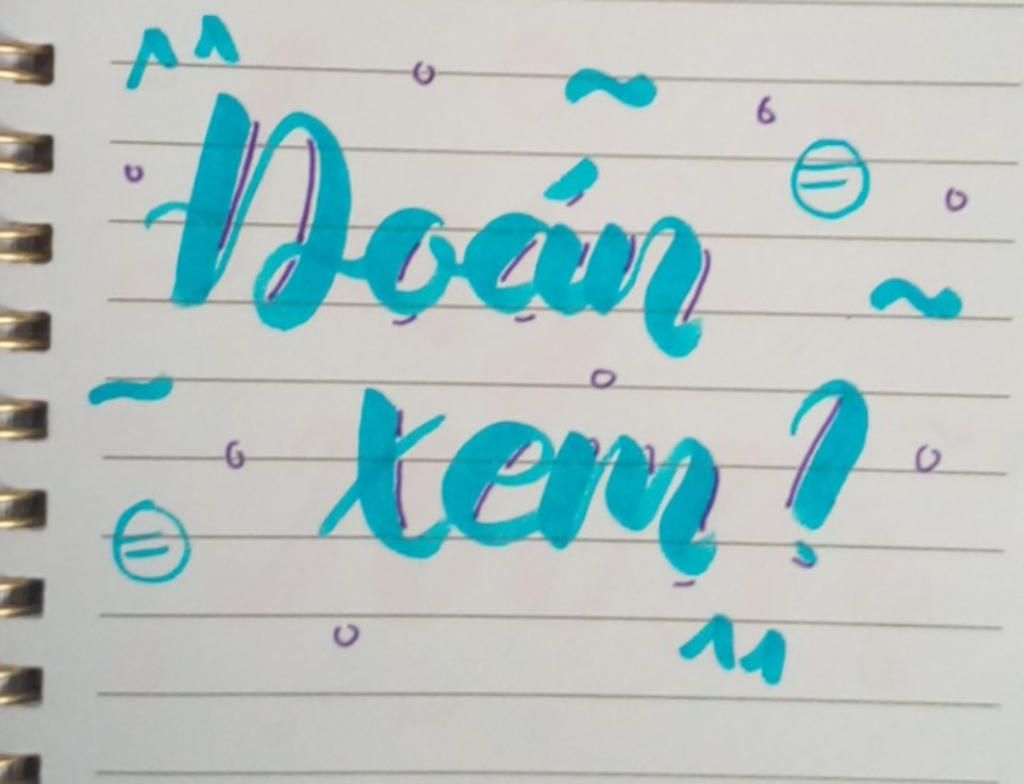 Đoán
xem?